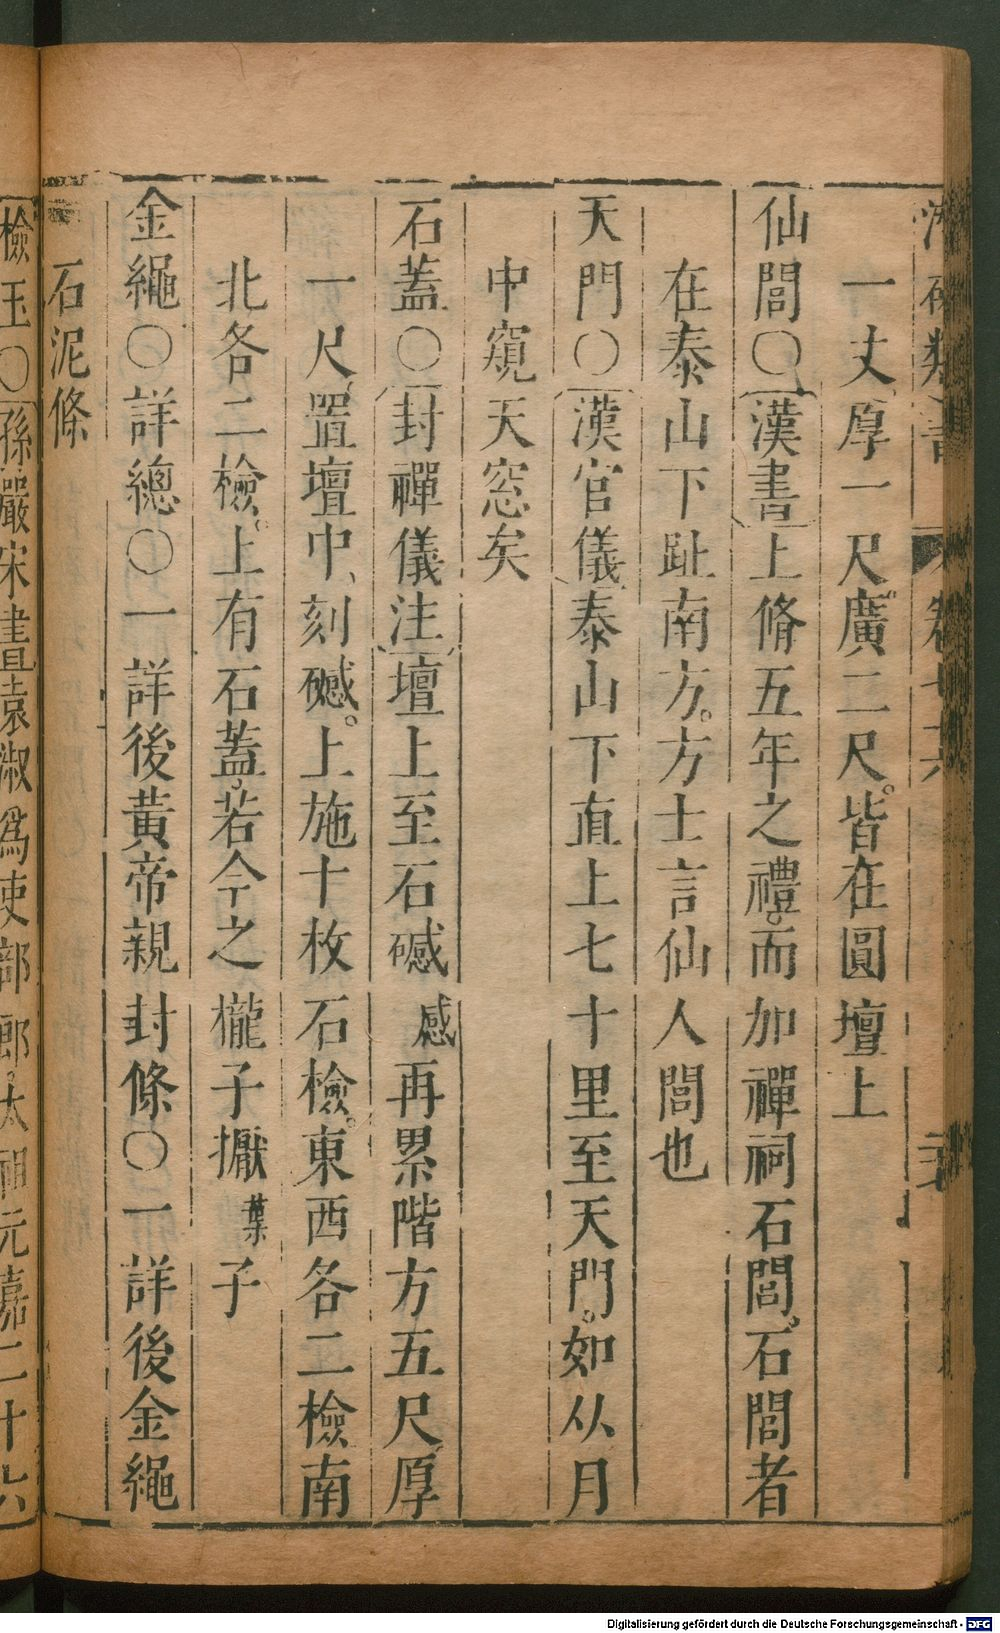 確類書 卷
一丈厚一尺。廣二尺。皆在圓壇上
仙閭〇漢書上脩五年之禮。而加禪祠石閭。石閭者
在泰山下趾南方。方士言仙人閭也
天門〇漢官儀泰山下直上七十里至天門。如从月
中窺天窓矣
石蓋〇封禪儀注壇上至石䃭感再累階方五尺厚
一尺、置壇中、刻䃭。上施十枚石檢。東西各二檢南
北各二檢。上有石蓋、若今之櫳子擫葉子
金繩〇詳總〇一詳後黃帝親封條〇一詳後金繩
石泥條
檢玉〇孫嚴宋書袁淑爲吏部郎。太祖元嘉二十六
Digitalisierung gefördert durch die Deutsche Forschungsgemeinschaft - DFG